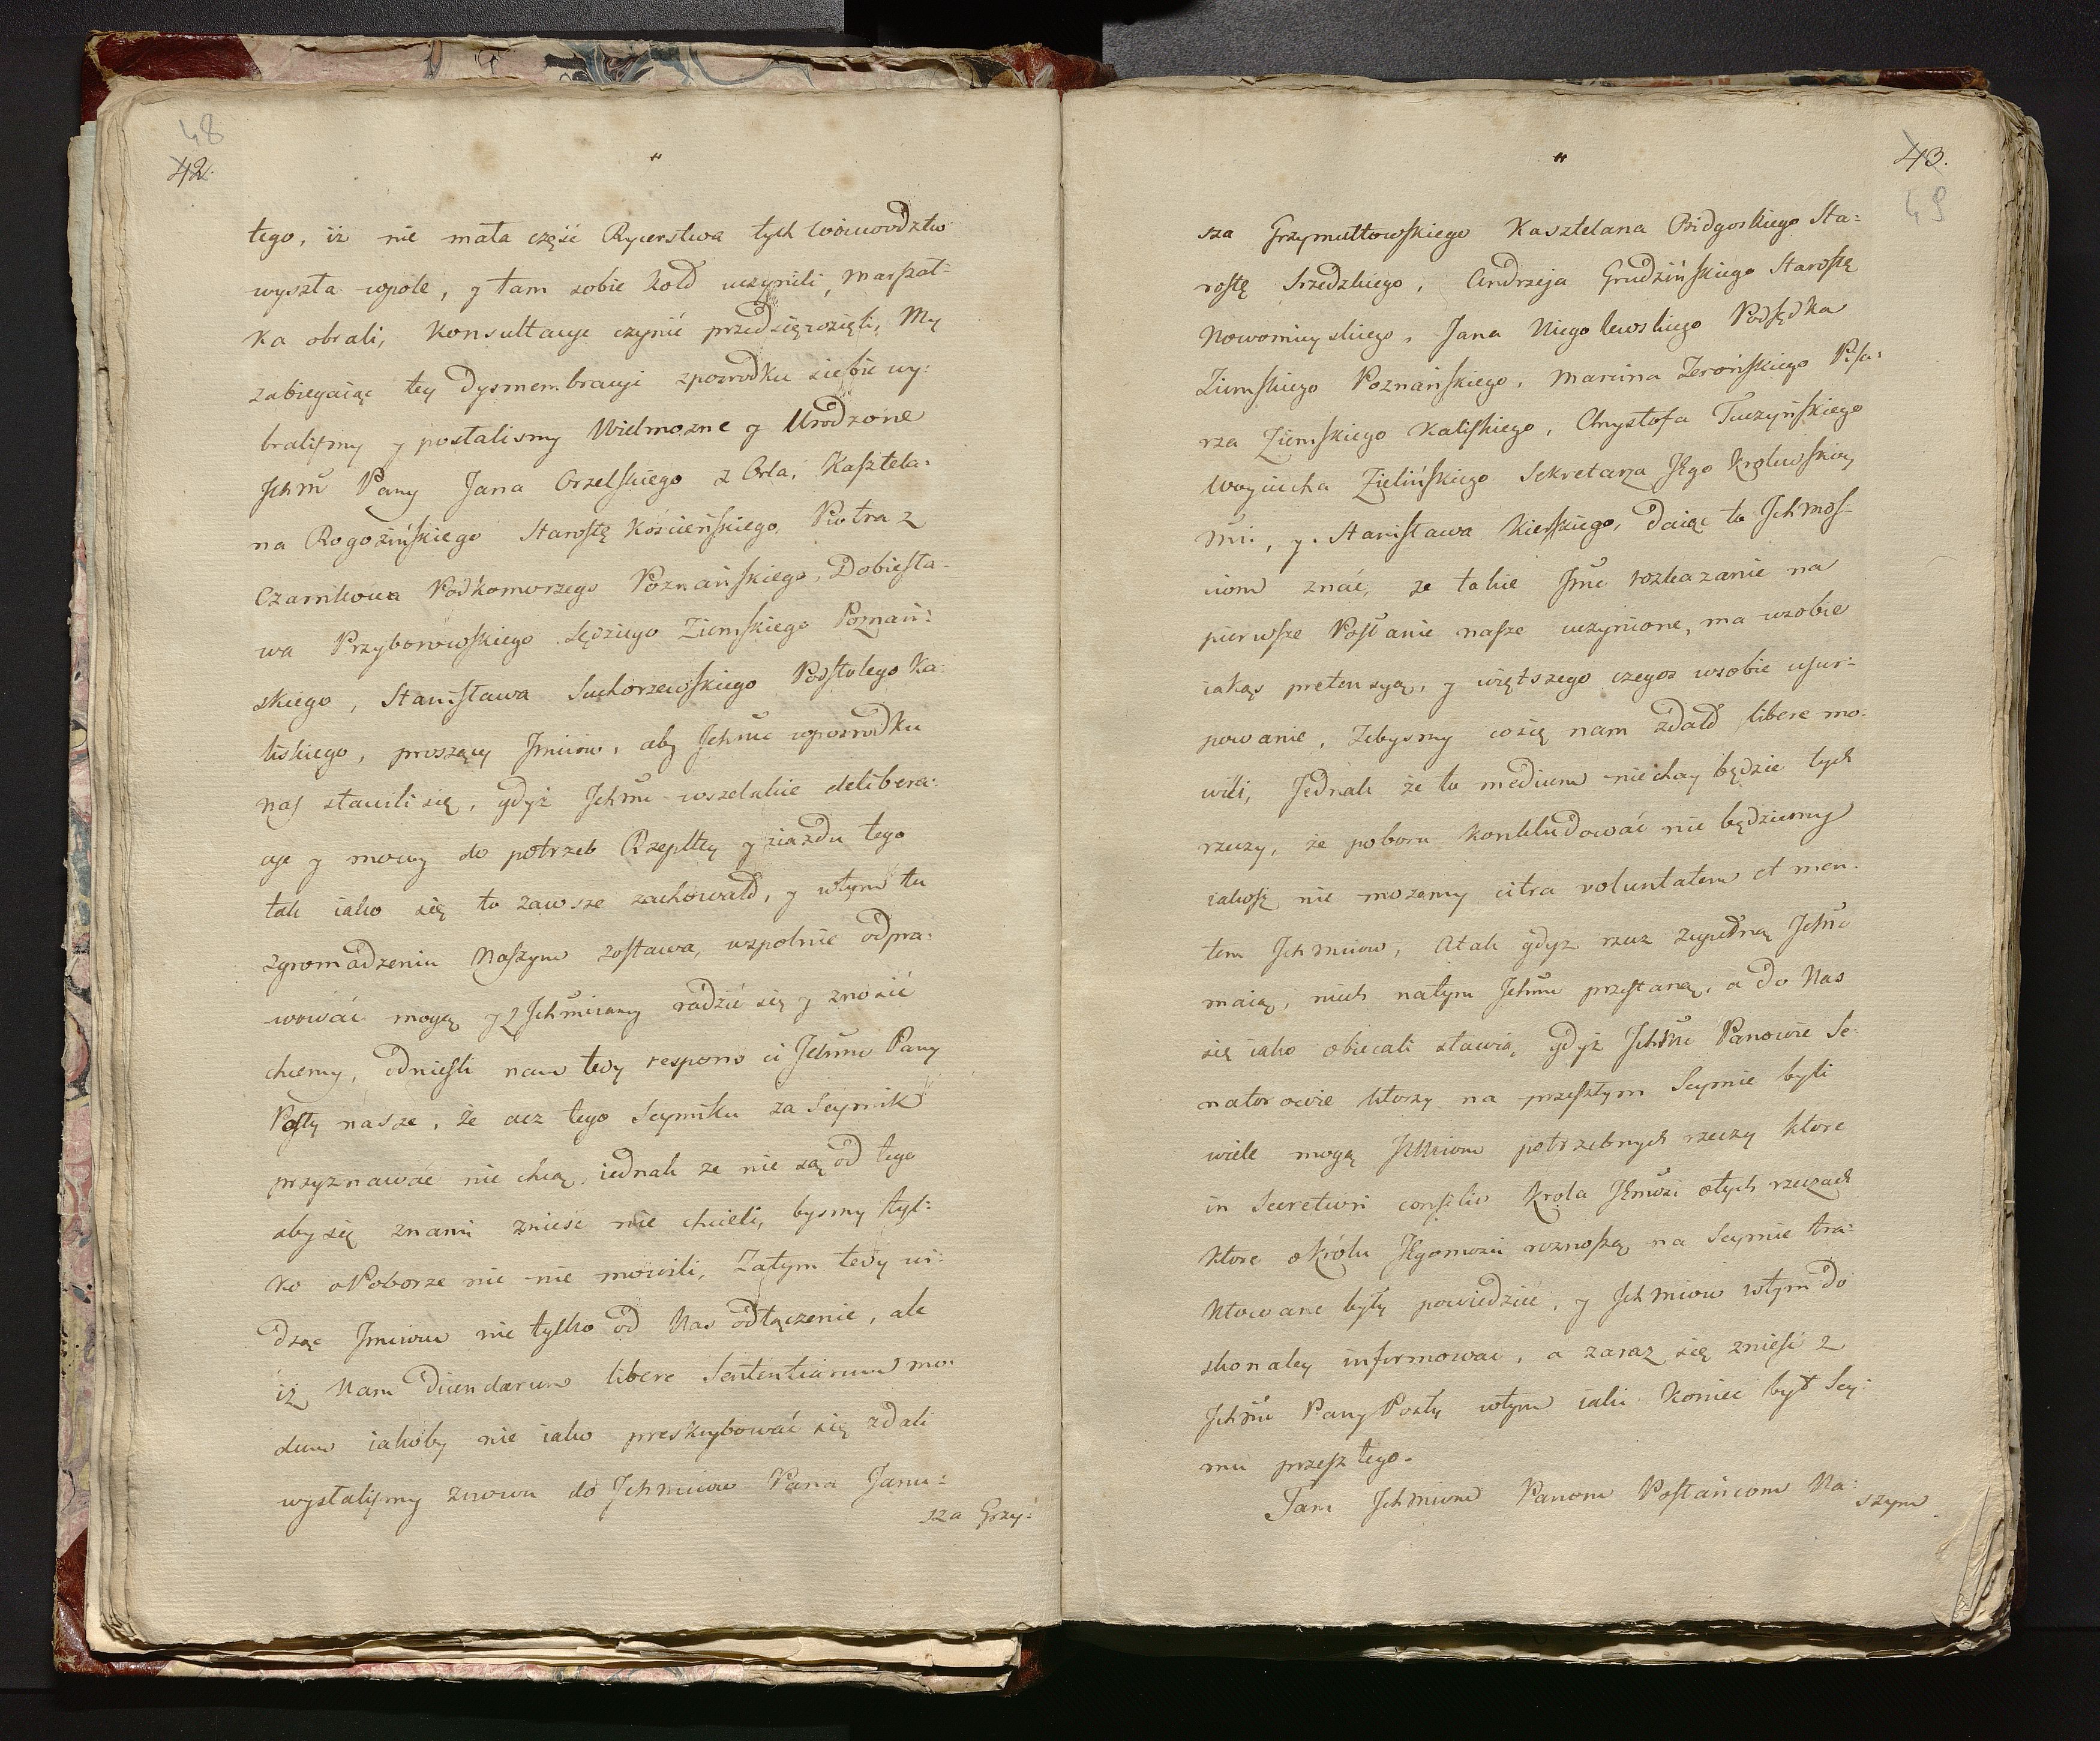 48
42.
"
tego, iż nie mała część Rycerstwa tych Woiewodztw
wyszła wpole, y tam sobie koło uczynili, Marszał:
ka obrali, Konsultacye czynić przedsięwzięli, My
zabiegaiąc tey Dysmembracyi zpozrodku siebie wy:
bralismy y posłalismy Wielmozne y Urodzone
Ichmc Pany Jana Orzelskiego z Orla, Kasztela:
na Rogozińskiego Starostę Kościeńskiego, Piotra z
Czarnkowa Podkomorzego Poznańskiego, Dobiesła-
wa Przyborowskiego Sędziego Ziemskiego Poznań:
skiego, Stanisława Suchorzewskiego Podstolego Ka:
liskiego, proszący Jmciow, aby Ichmc wpozrodku
nas stawili się, gdyż Ichmc wszelakie delibera:
cye y mowy do potrzeb Rzeplty y ziazdu tego
tak iako się to zawsze zachowało, y wtym tu
zgromadzeniu Naszym zostawa, wspolnie odpra:
wować mogą y z Ichmciamy radzić się y znosić
chcemy, odniesli nam tedy respons ci Ichmc Pany
Posły nasze, że acz tego Seymiku za Seymik
przyznawać nie chcą, iednak ze nie są od tego
aby się znami znieść nie chcieli, bysmy tyl:
ko o Poborze nic nie mowili, Zatym tedy wi:
dząc Jmciow nie tylko od Nas odłączenie, ale
iż Nam dicendarum libere Sententiarum mo:
dum iakoby nie iako preskrybować się zdali
wysłalismy znowu do Ichmciow Pana Janu:
sza Grzy:
43.
49
"
sza Grzymułtowskiego Kasztelana Bidgoskiego Sta:
rostę Srzedzkiego, Andrzeja Grudzińskiego Starostę
Nowomieyskiego, Jana Niegolewskiego Podsędka
Ziemskiego Poznańskiego, Marcina Zerońskiego Pisa:
rza Ziemskiego Kaliskiego, Chrystofa Tuczyńskiego
Woyciecha Zielińskiego Sekretarza JKgo Krolewskiey
Mci, y Stanisława Kierskiego, daiąc to Ichmos-
ciom znać, ze takie Jmc rozkazanie na
pierwsze Posłanie nasze uczynione, ma wsobie
iakąs pretensyą, y więtszego czegos wsobie usur:
powanie, Zebysmy co się nam zdało libere mo:
wili, Jednak że to medium niechay będzie tych
rzeczy, że poboru konkludować nie będziemy
iakosz nie mozemy citra voluntatem et men:
tem Ichmciow, A tak gdyz rzecz zupełną Ichmc
maią, niech natym Ichmc przestaną, a do Nas
się iako obiecali stawią, gdyż Ichmc Panowie Se:
natorowie ktorzy na przeszłym Seymie byli
wiele mogą Ichmciom potrzebnych rzeczy ktore
in Secretiori consilio Krola JKmosci o tych rzeczach
ktore o Krolu JKgomosci roznoszą na Seymie tra:
ktowane były powiedzieć, y Ichmciow wtym do
skonaley informować, a zaraz się znieść z
Ichmc Pany Posły wtym iaki koniec był Sey:
mu przeszłego.
Tam Ichmciom Panom Posłańcom Na:
szym